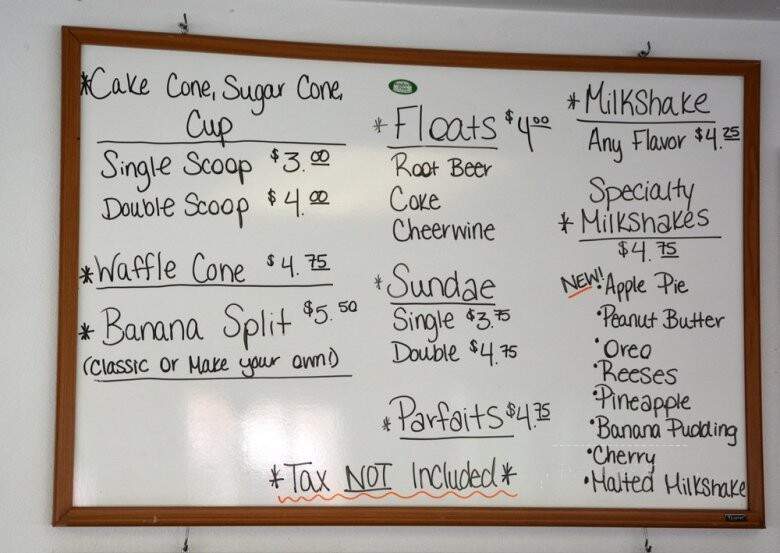 *Cake Cone, Sugar Cone,
Cup
Single Scoop $3.00
Double Scoop $4.00
*Waffle Cone $4.75
*Banana Split $5.50
(Classic or Make your own!)
*Floats $4.00
Root Beer
Coke
Cheerwine
*Sundae
Single $3.75
Double $4.75
*Parfaits $4.75
*Milkshake
Any Flavor $4.25
Specialty
*Milkshakes
$4.75
NEW! Apple Pie
•Peanut Butter
•Oreo
•Reeses
•Pineapple
•Banana Pudding
•Cherry
•Malted Milkshake
*Tax NOT Included*